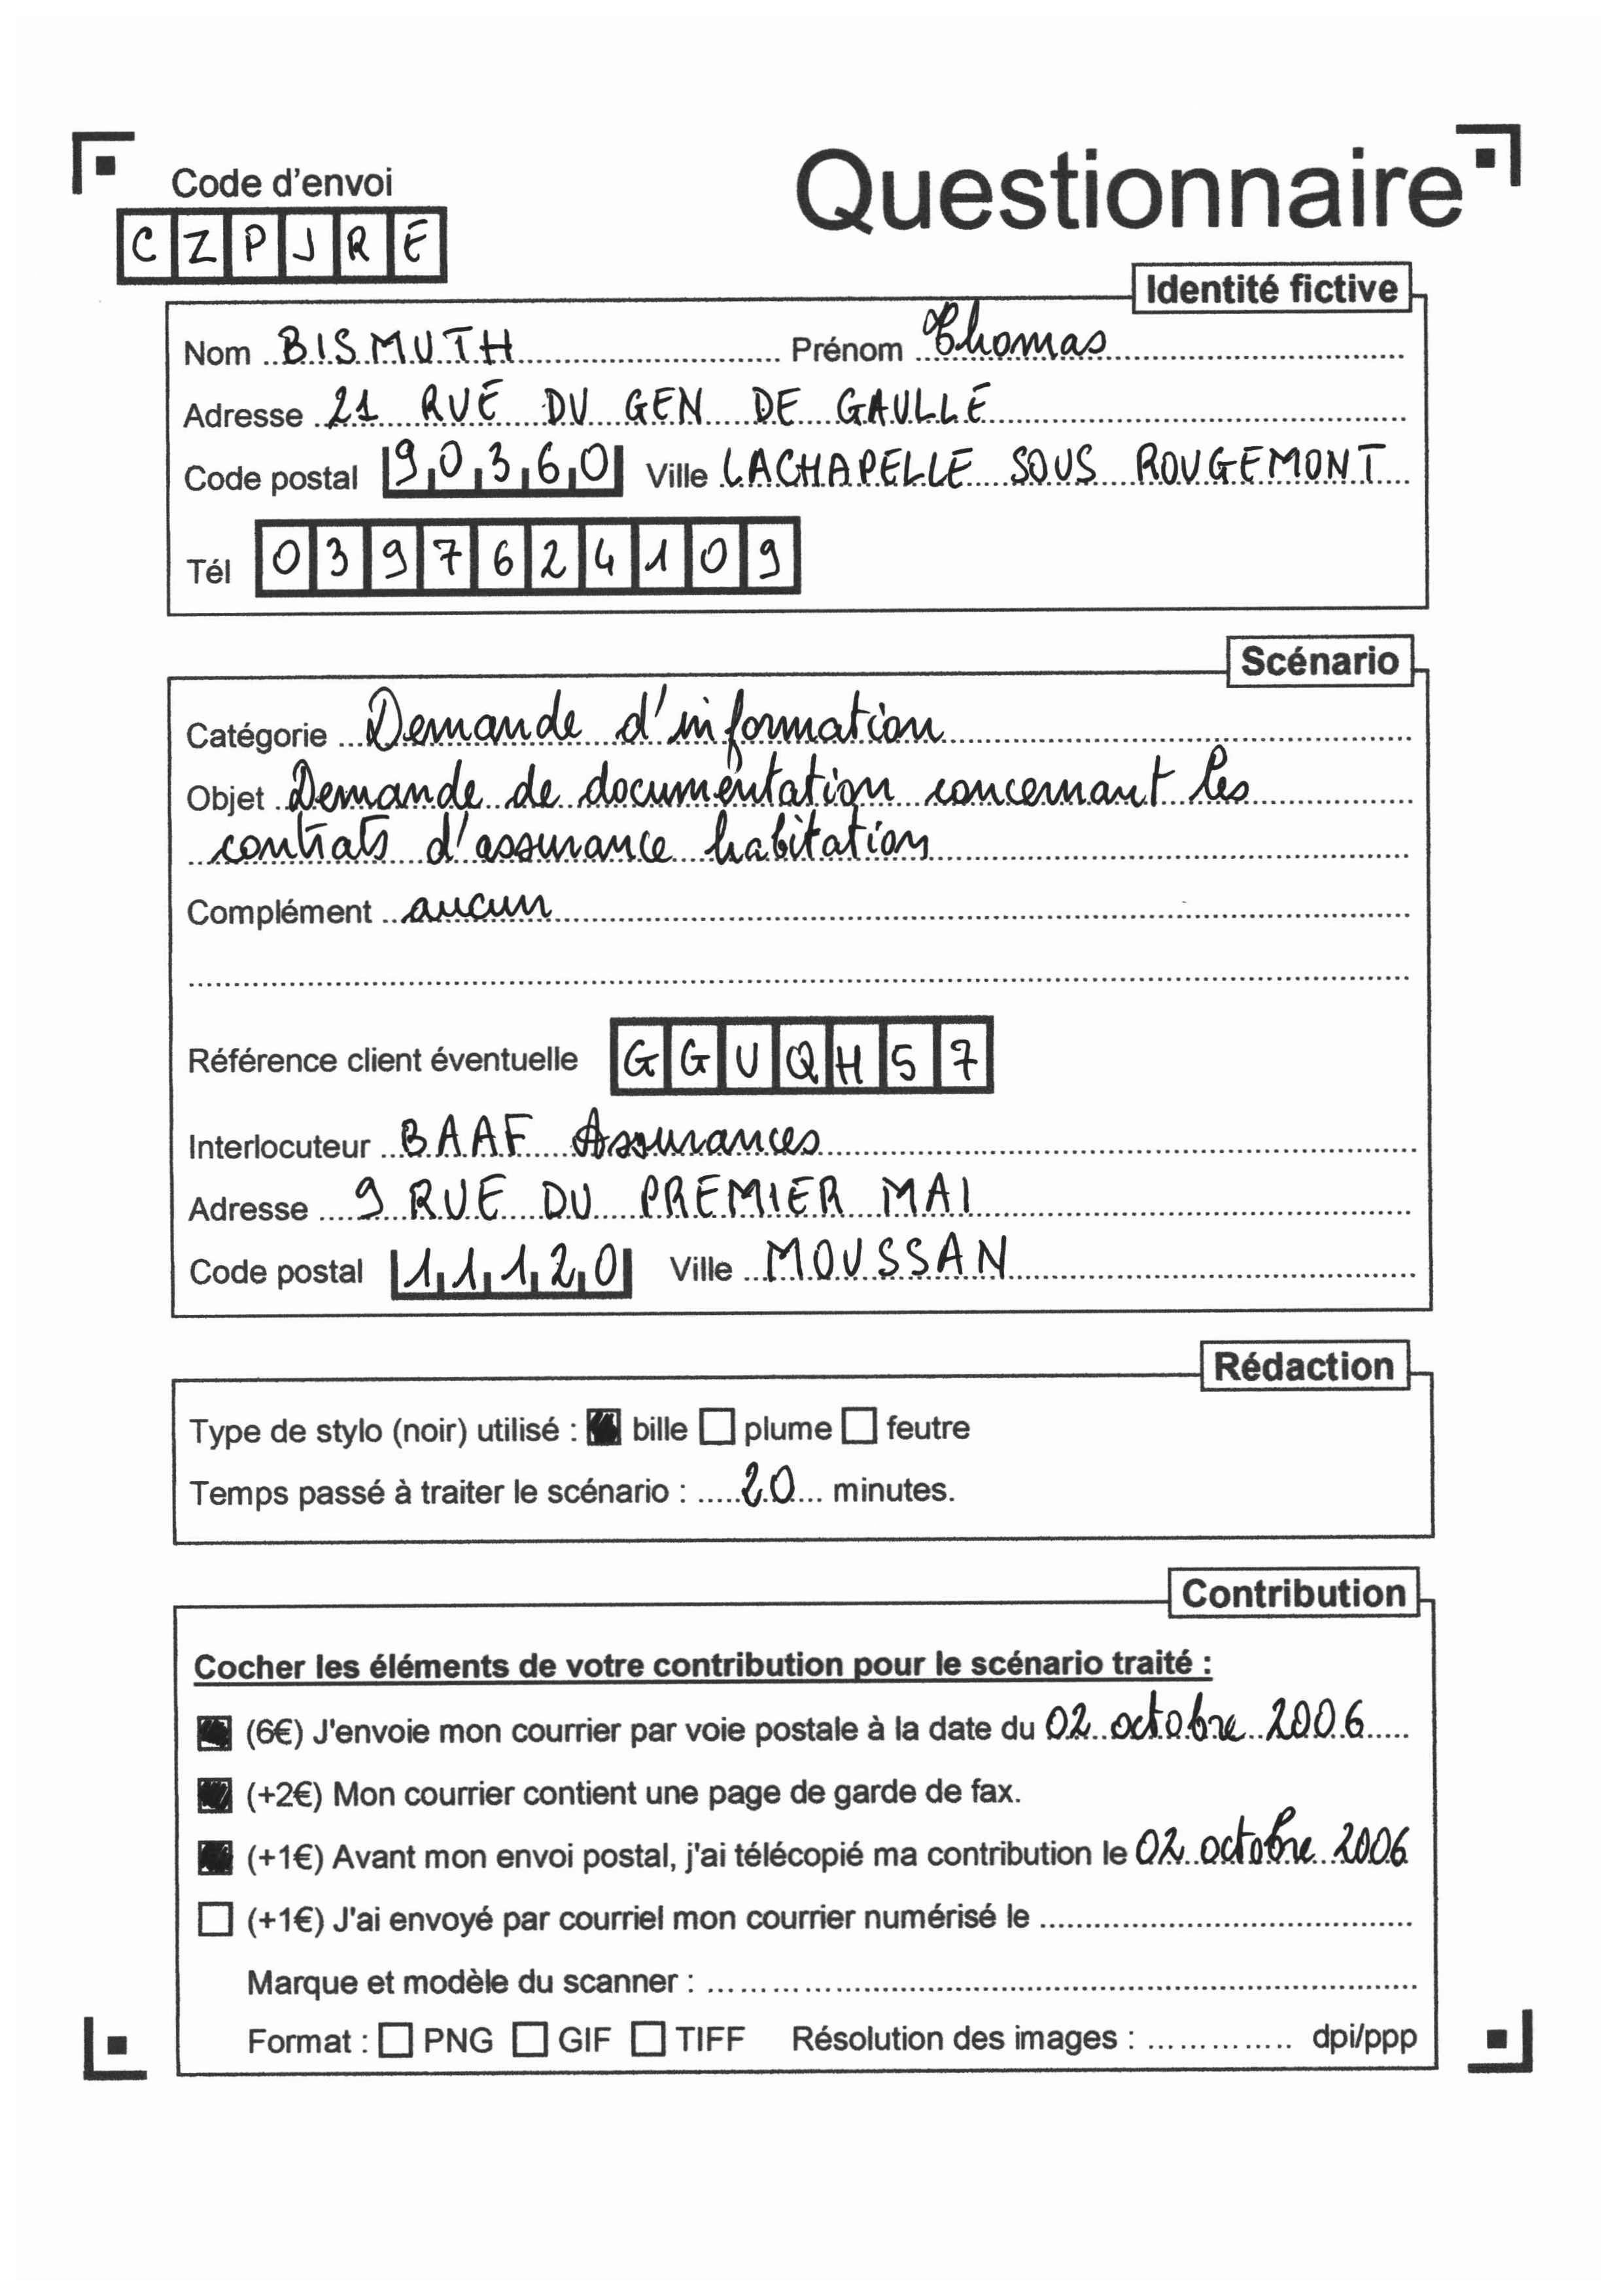 Questionnaire
Code d'envoi
CZPJRE
Identité fictive
Nom BISMUTH Prénom Thomas
Adresse 21 RUE DU GEN DE GAULLE
Code postal 90360 Ville LACHAPELLE SOUS ROUGEMONT
Tél 0397624109
Scénario
Catégorie Demande d'information
Objet Demande de documentation concernant les
contrats d'assurance habitation
Complément aucun
Référence client éventuelle GGUQH57
Interlocuteur BAAF Assurances
Adresse 9 RUE DU PREMIER MAI
Code postal 11120 Ville MOUSSAN
Rédaction
Type de stylo (noir) utilisé : bille plume feutre
Temps passé à traiter le scénario : 20 minutes.
Contribution
Cocher les éléments de votre contribution pour le scénario traité :
(6€) J'envoie mon courrier par voie postale à la date du 02 octobre 2006
(+2€) Mon courrier contient une page de garde de fax.
(+1€) Avant mon envoi postal, j'ai télécopié ma contribution le 02 octobre 2006
(+1€) J'ai envoyé par courriel mon courrier numérisé le
Marque et modèle du scanner :
Format : PNG GIF TIFF Résolution des images : dpi/ppp